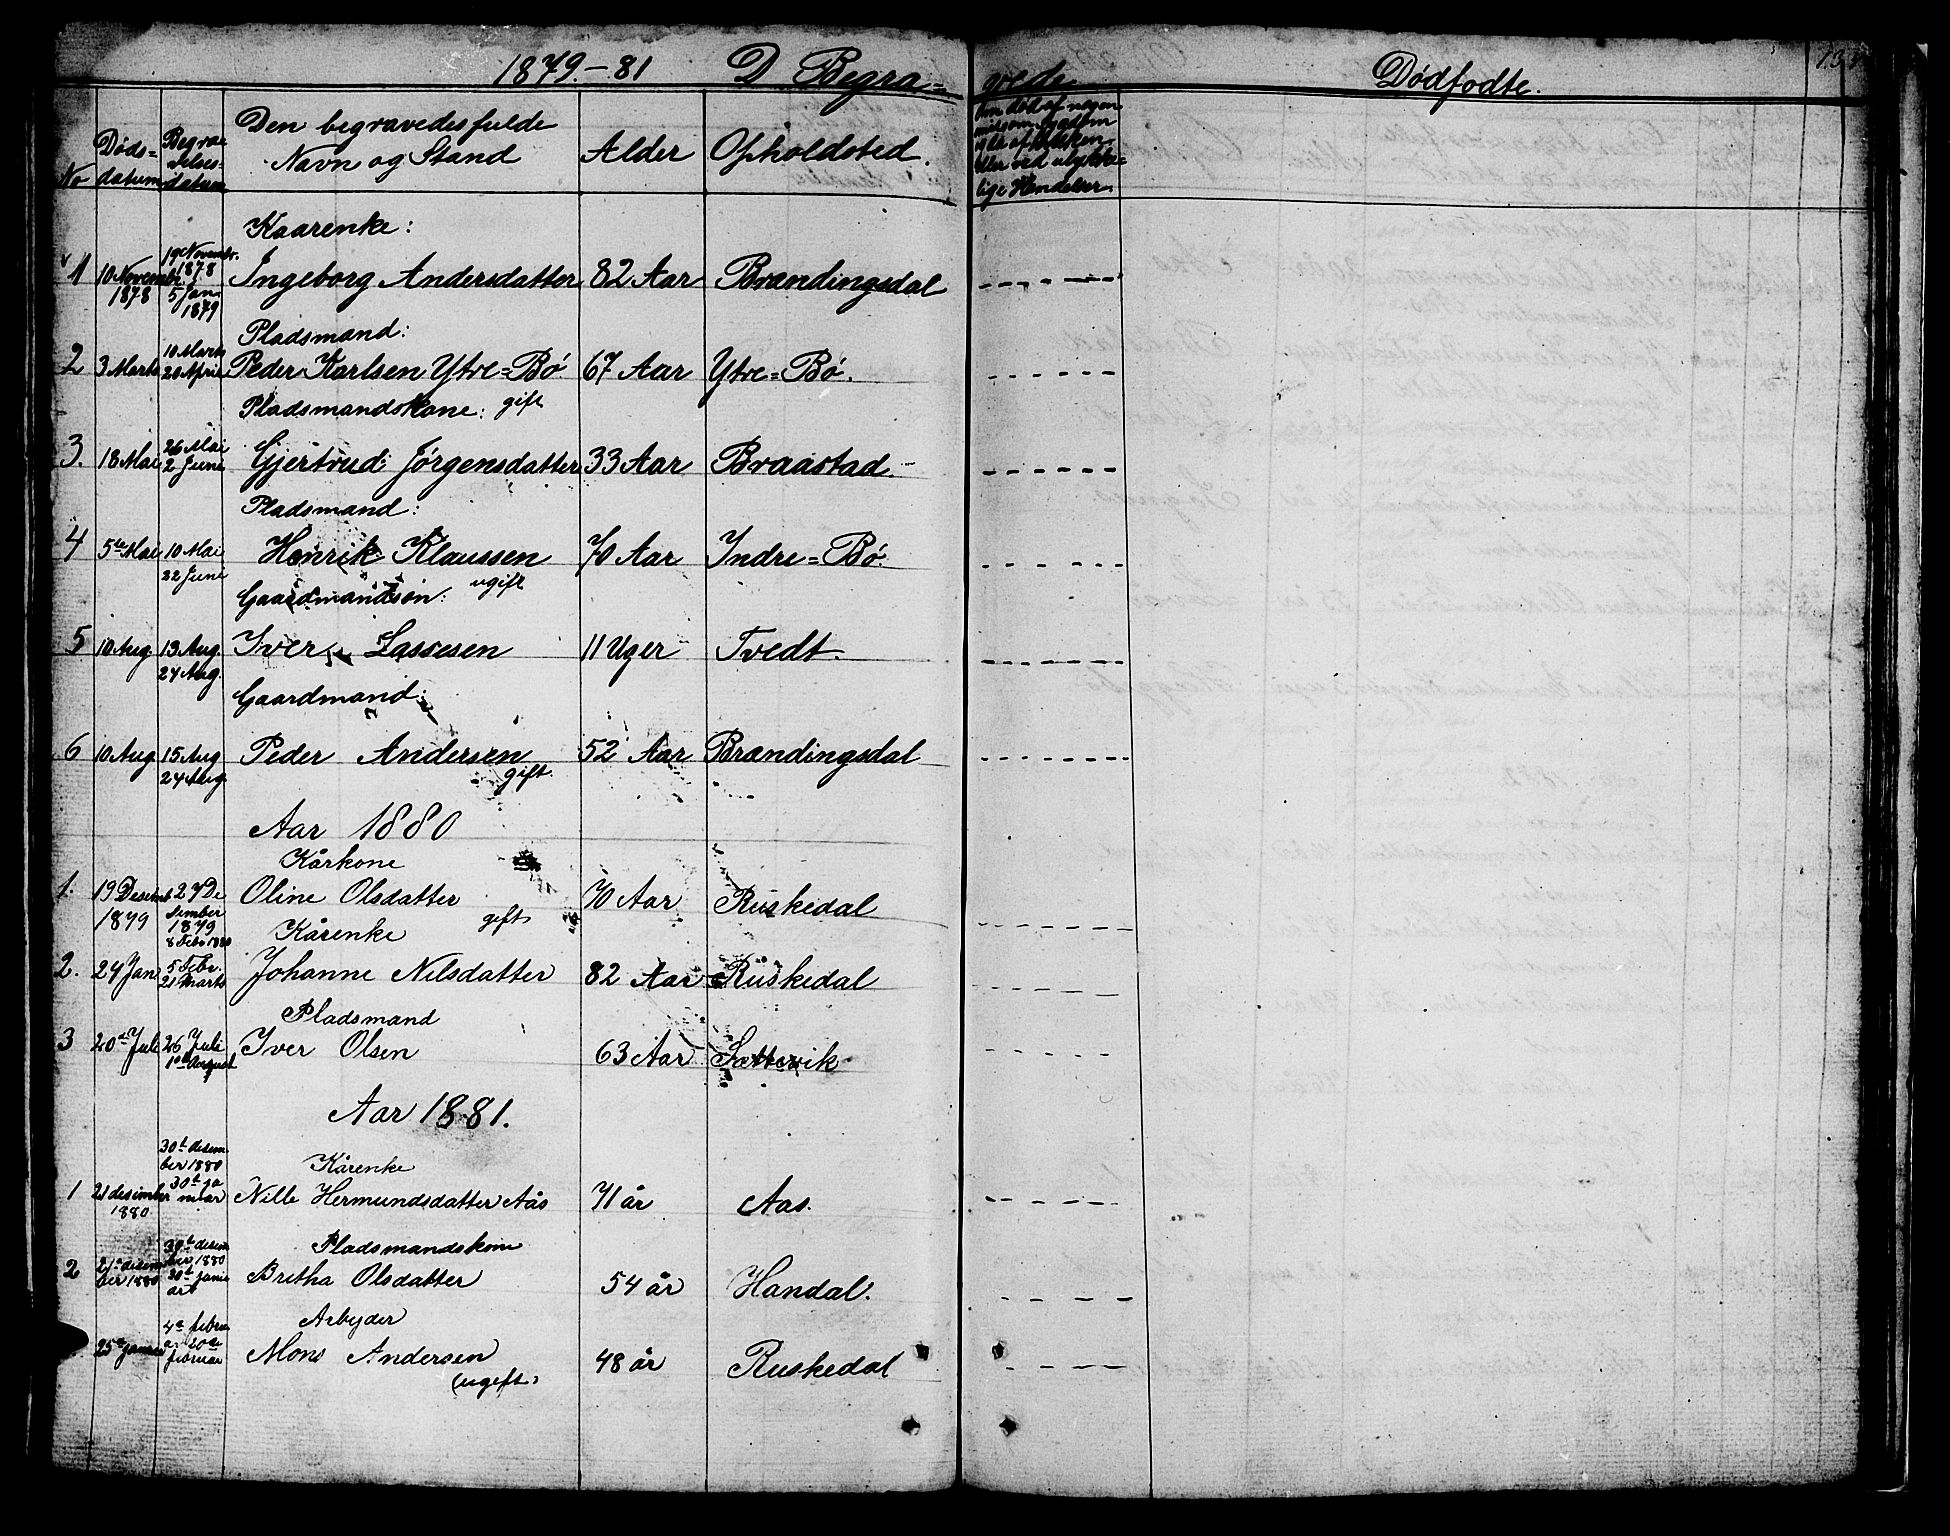 1879.-81 D Begra=
vede
Dødfødte.
No
Døds=
datum
Begrav
elses-
datum
Den begravedes fulde
Navn og Stand
Alder
Opholdsted.
Om død af nogen
ller ved ulykke=
lige Hendelser.
Kaarenke:
1 10 Novembr 1878
19 Novembr. 1878
5 Jan 1879
Ingeborg Andersdatter 82 Aar Brandingsdal
Pladsmand:
2 3 Marts 10 Marts 20 April Peder Karlsen Ytre=Bö 67 Aar Ytre=Bö.
Pladsmandskone: gift
3. 18 Mai 26 Mai 2 Juni Gjertrud Jørgensdatter 33 Aar Braastad.
Pladsmand:
4 5te Mai 10 Mai 22 Juni Henrik Klaussen 70 Aar Indre=Bö.
ugift
Gaardmandsøn:
5 10 Aug. 13 Aug. 24 Aug. Iver Lassesen 11 Uger Tvedt.
Gaardmand:
6 10 Aug. 15 Aug 24 Aug. Peder Andersen 52 Aar Brandingsdal
gift
Aar 1880
Kårkone
1. 19 Desemb 1879 27 De sember 1879 8 Febr 1880 Oline Olsdatter 70 Aar Ruskedal
gift
Kårenke
2. 24 Jan 5 Febr. 21 Marts Johanne Nilsdatter 82 Aar Ruskedal
Pladsmand
3 20de Juli 26 Juli 1ste August Iver Olsen 63 Aar Sættevik
Aar 1881.
Kårenke
1 21 desember 1880 30t desem ber 1880 30t ja nuar Nille Hermundsdatter Aås 71 år Aas.
Pladsmandskone
2 21de desem ber 1880 30t desem ber 1880 30t janu art Britha Olsdatter 54 år Handal.
Arbyder
25de januar 4de februa ar 20de februar Mons Andersen 48 år Ruskedal
(ugift)